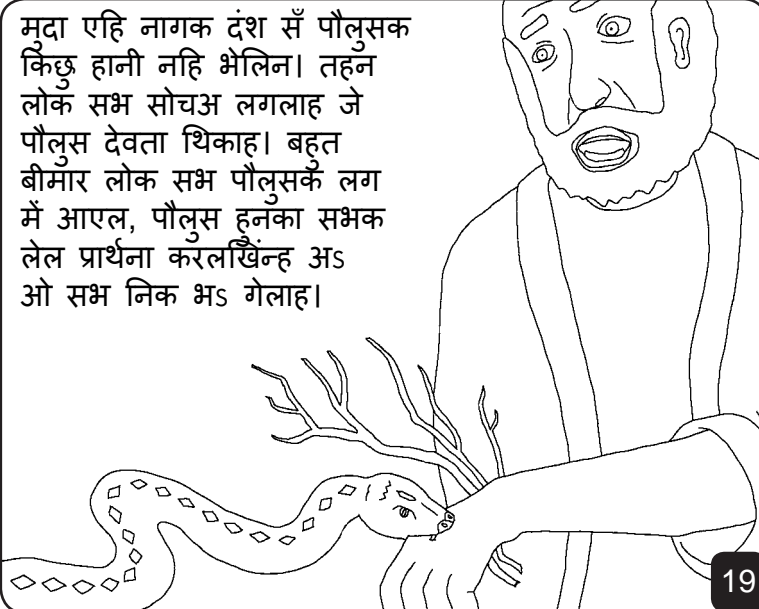 मुदा एहि नागक दंश सँ पौलुसक
किछु हानी नहि भेलिन। तहन
लोक सभ सोचअ लगलाह जे
पौलुस देवता थिकाह। बहुत
बीमार लोक सभ पौलुसक लग
में आएल, पौलुस हुनका सभक
लेल प्रार्थना करलखिंन्ह अऽ
ओ सभ निक भऽ गेलाह।
19